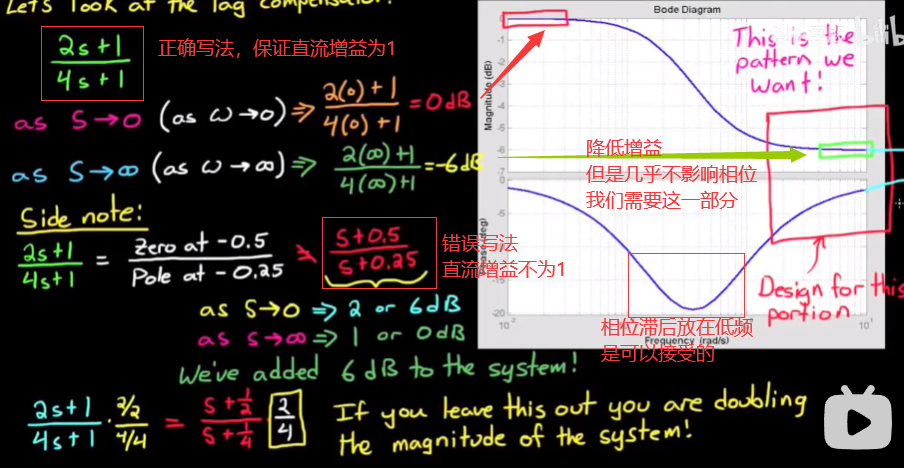 Let's look at the lag compensator!
2s+1
4s+1
正确写法，保证直流增益为1
as S→0 (as ω→0) ⇒ 2(0)+1 = 0dB
4(0)+1
as S→∞ (as ω→∞) ⇒ 2(∞)+1 = -6dB
4(∞)+1
Side note:
2s+1 = Zero at -0.5
4s+1 Pole at -0.25
S+0.5
S+0.25
错误写法
直流增益不为1
as S→0 ⇒ 2 or 6dB
as S→∞ ⇒ 1 or 0dB
We've added 6 dB to the system!
2s+1 · 2/2 = S+1/2 2
4s+1 4/4 S+1/4 4
If you leave this out you are doubling
the magnitude of the system!
Bode Diagram
0
-1
-5
-6
-7
Magnitude (dB)
This is the
pattern we
want!
降低增益
但是几乎不影响相位
我们需要这一部分
0
-15
-20
相位滞后放在低频
是可以接受的
Frequency (rad/s)
Design for this
portion